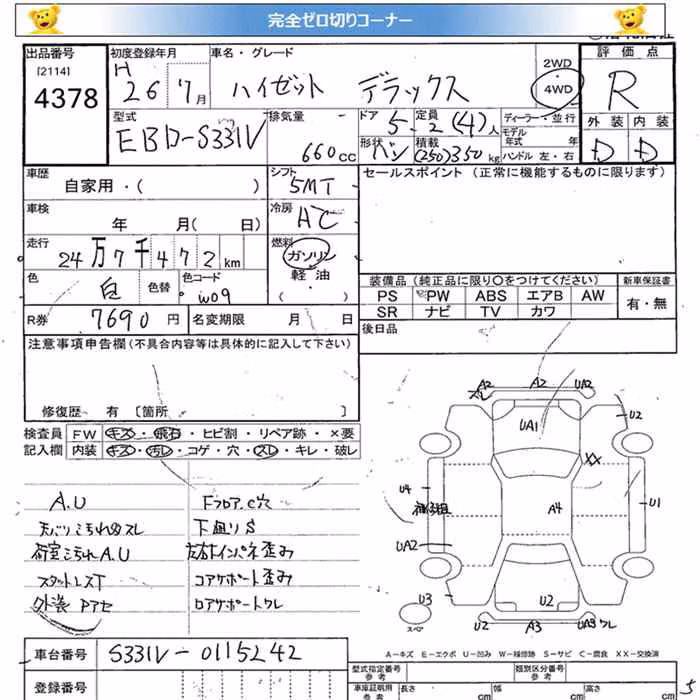 完全ゼロ切りコーナー
出品番号 初度登録年月 車名・グレード 2WD 評価点
[2114] H 26 7月 ハイゼット デラックス 4WD R
4378
型式 排気量 ドア 定員 ディーラー・並行 外装 内装
EBD-S331V 660cc 5 2(4)人 モデル年式 年 D D
形状 バン 積載 (250)350kg ハンドル 左・右
車歴 シフト セールスポイント (正常に機能するものに限ります)
自家用・( ) 5MT
車検 冷房
年 月( 日) AC
走行 燃料
24万7千472km ガソリン
色 色替 色コード 軽油 装備品 (純正品に限り〇をつけてください) 新車保証書
白 W09 ( ) PS PW ABS エアB AW 有・無
R券 7690円 名変期限 月 日 SR ナビ TV カワ
注意事項申告欄(不具合内容等は具体的に記入して下さい) 後日品
修復歴 有 [箇所 ]
検査員 FW キズ・飛石・ヒビ割・リペア跡・×要
記入欄 内装 キズ・汚レ・コゲ・穴・スレ・キレ・破レ
A2 A2 UA2
スレ
UA1 U2
XX
U4 A4 U1
UA2
U3 U2
スペア U2 A3 UA3 ワレ
A.U Fフロア.C穴
天バリこ汚れ凹スレ 下廻りS
荷室こ汚れA.U 左右インパネ歪み
スタットレスT コアサポート歪み
外装Pアセ ロアサポートワレ
A−キズ E−エクボ U−凹み W−補修跡 S−サビ C−腐食 XX−交換済
車台番号 S331V-0115242 型式指定番号 参考 類別区分番号 参考
登録番号 車庫証明用 参考 長さ cm 幅 cm 高さ cm